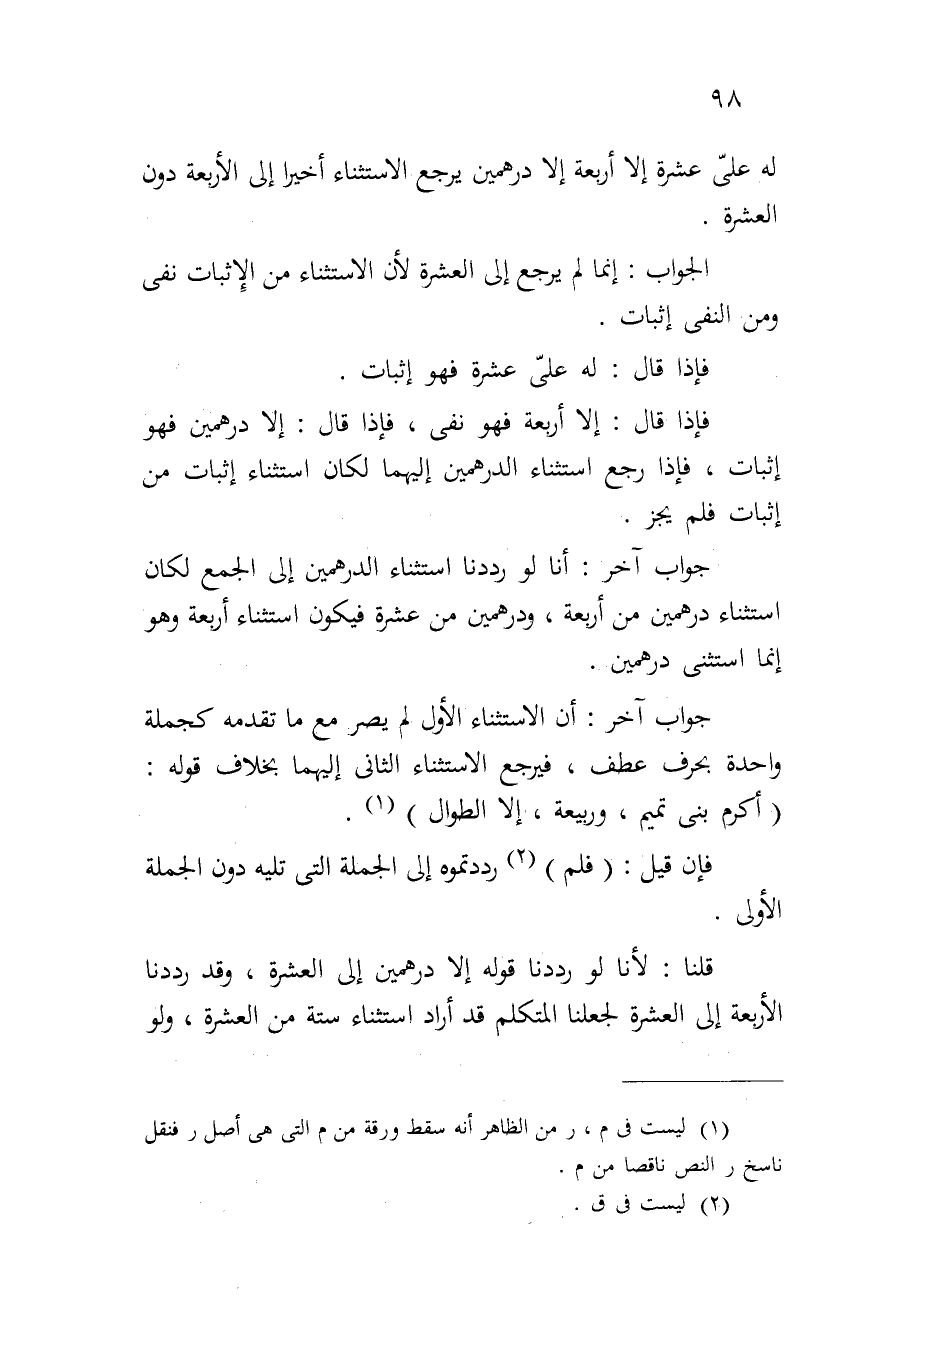 ٩٨
له علىّ عشرة إلا أربعة إلا درهمين يرجع الاستثناء أخيرا إلى الأربعة دون
العشرة .
الجواب : إنما لم يرجع إلى العشرة لأن الاستثناء من الإثبات نفى
ومن النفى إثبات .
فإذا قال : له علىّ عشرة فهو إثبات .
فإذا قال : إلا أربعة فهو نفى ، فإذا قال : إلا درهمين فهو
إثبات ، فإذا رجع استثناء الدرهمين إليهما لكان استثناء إثبات من
إثبات فلم يجز .
جواب آخر : أنا لو رددنا استثناء الدرهمين إلى الجمع لكان
استثناء درهمين من أربعة ، ودرهمين من عشرة فيكون استثناء أربعة وهو
إنما استثنى درهمين .
جواب آخر : أن الاستثناء الأول لم يصر مع ما تقدمه كجملة
واحدة بحرف عطف ، فيرجع الاستثناء الثانى إليهما بخلاف قوله :
( أكرم بنى تميم ، وربيعة ، إلا الطوال ) (١) .
فإن قيل : ( فلم ) (٢) رددتموه إلى الجملة التى تليه دون الجملة
الأولى .
قلنا : لأنا لو رددنا قوله إلا درهمين إلى العشرة ، وقد رددنا
الأربعة إلى العشرة لجعلنا المتكلم قد أراد استثناء ستة من العشرة ، ولو
(١) ليست فى م ، ر من الظاهر أنه سقط ورقة من م التى هى أصل ر فنقل
ناسخ ر النص ناقصا من م .
(٢) ليست فى ق .